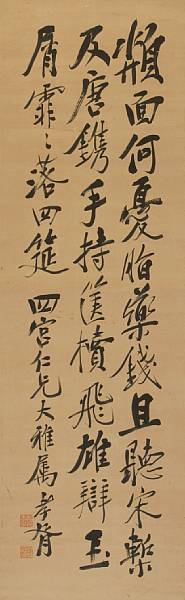 頮面何憂脂藥錢且聽宋槧
及唐鐫手持篋櫝飛雄辯玉
屑霏〻落四筵 四宮仁兄大雅屬 孝胥